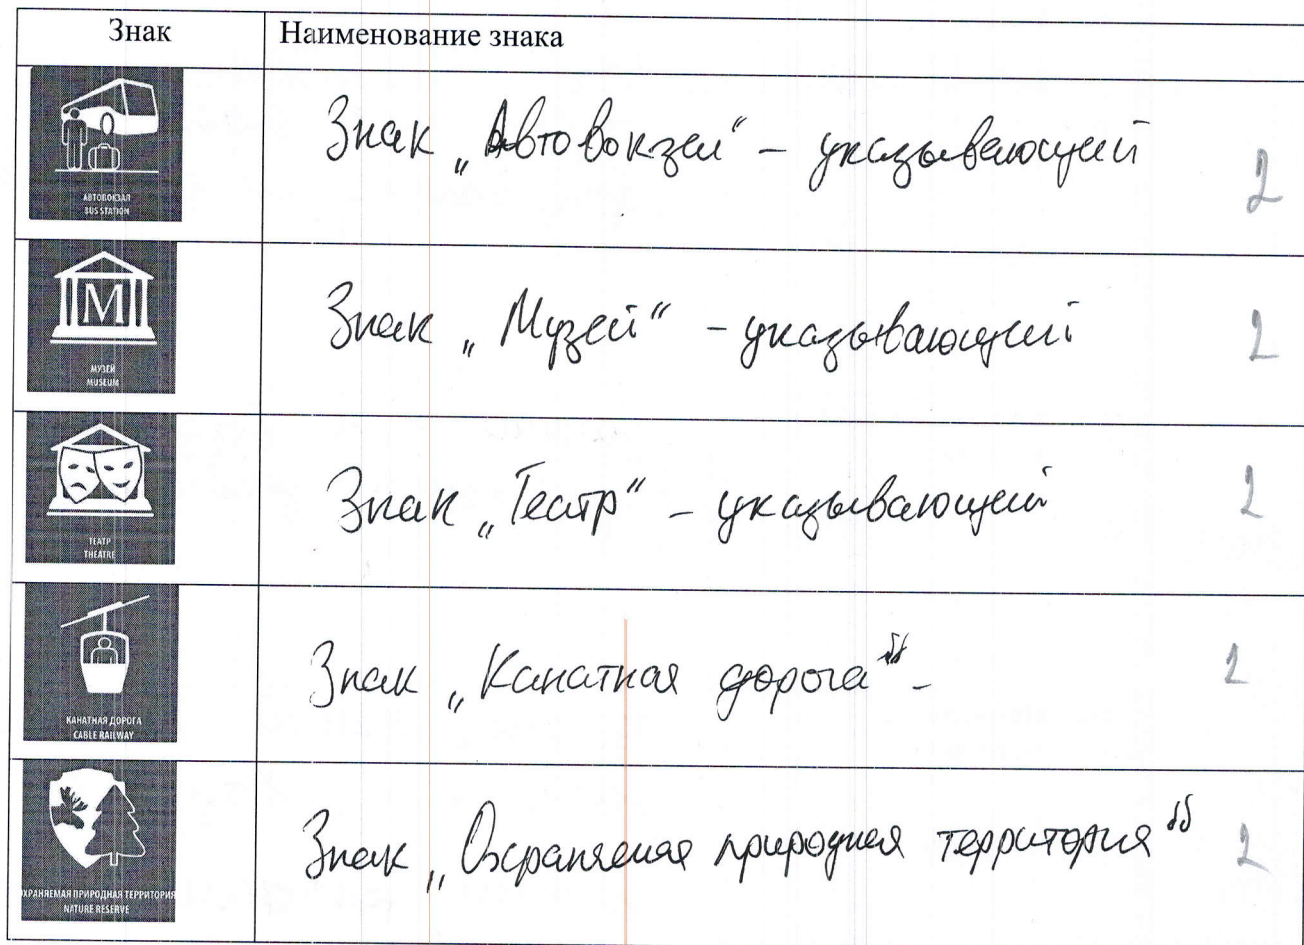 Знак Наименование знака
АВТОВОКЗАЛ
BUS STATION
Знак „Автовокзал“ – указывающий 2
МУЗЕЙ
MUSEUM
Знак „Музей“ – указывающий 2
ТЕАТР
THEATRE
Знак „Театр“ – указывающий 2
КАНАТНАЯ ДОРОГА
CABLE RAILWAY
Знак „Канатная дорога“ – 2
ХРАНЯЕМАЯ ПРИРОДНАЯ ТЕРРИТОРИЯ
NATURE RESERVE
Знак „Охраняемая природная территория“ 2
М